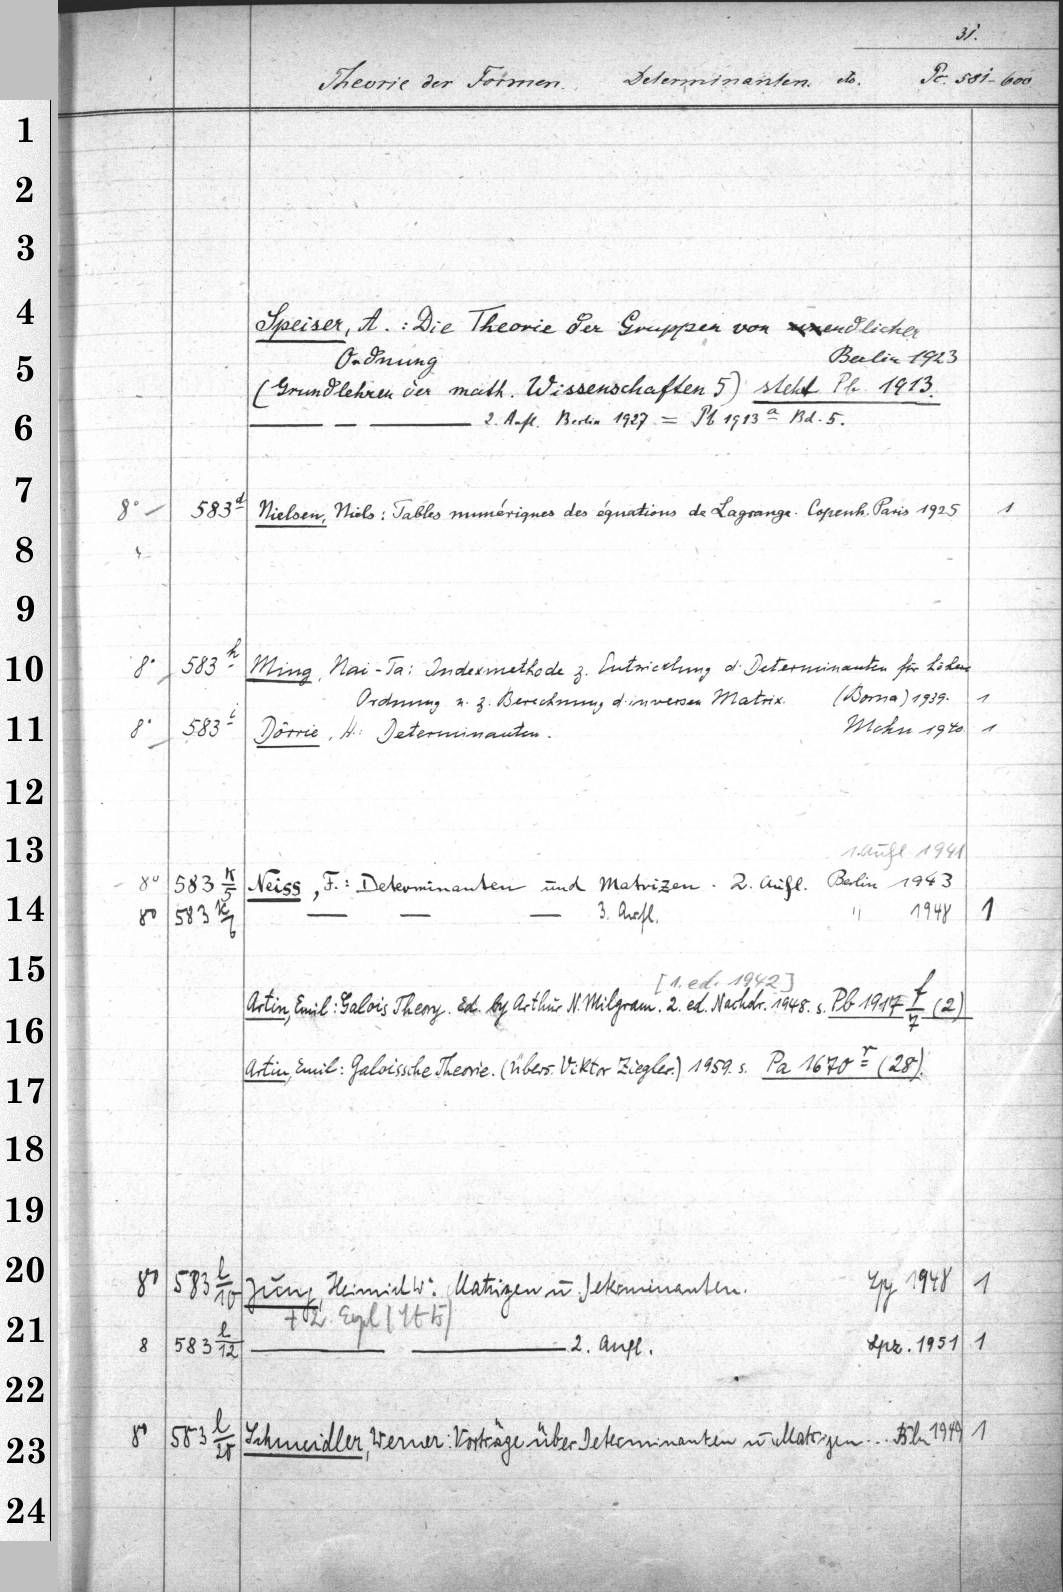 31.
Theorie der Formen. Determinanten. etc. Pc. 581-600
1
2
3
4 Speiser, A.: Die Theorie der Gruppen von endlicher
5 Ordnung Berlin 1923
(Grundlehren der math. Wissenschaften 5) steht Pb 1913.
6 2. Aufl. Berlin 1927 = Pb 1913 a Bd. 5.
7 8° 583 d Nielsen, Niels: Tables numériques des équations de Lagrange. Copenh. Paris 1925 1
8
9
10 8° 583 h Ming, Nai-Ta: Indexmethode z. Entwicklung d. Determinanten für höhere
Ordnung u. z. Berechnung d. inversen Matrix. (Borna) 1939. 1
11 8° 583 i Dörrie, H.: Determinanten. Mchn 1940. 1
12
13 1. Aufl 1941
8° 583 k/5 Neiss, F.: Determinanten und Matrizen. 2. Aufl. Berlin 1943
14 8° 583 k/6 — — — 3. Aufl. " 1948 1
15 [1. ed. 1942]
Artin, Emil: Galois Theory. Ed. by Arthur N. Milgram. 2. ed. Nachdr. 1948. s. Pb 1917 f/7 (2)
16
Artin, Emil: Galoissche Theorie. (Übers. Viktor Ziegler.) 1959. s. Pa 1670 r (28).
17
18
19
20 8° 583 l/10 Jung, Heinrich W.: Matrizen u. Determinanten. Lpz 1948 1
21 + 2. Expl
8 583 l/12 — — 2. Aufl. Lpz. 1951 1
22
23 8° 583 l/20 Schmeidler, Werner: Vorträge über Determinanten u. Matrizen... Bln 1949 1
24